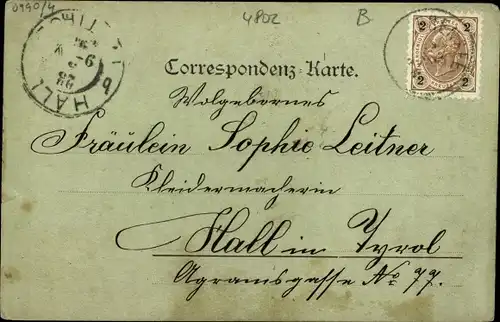 0990/4
4802
B
HALL
2 2
2 2
Correspondenz-Karte.
Wolgebornes
Fräulein Sophie Leitner
Kleidermacherin
Hall in Tyrol
Agramsgasse No 77.